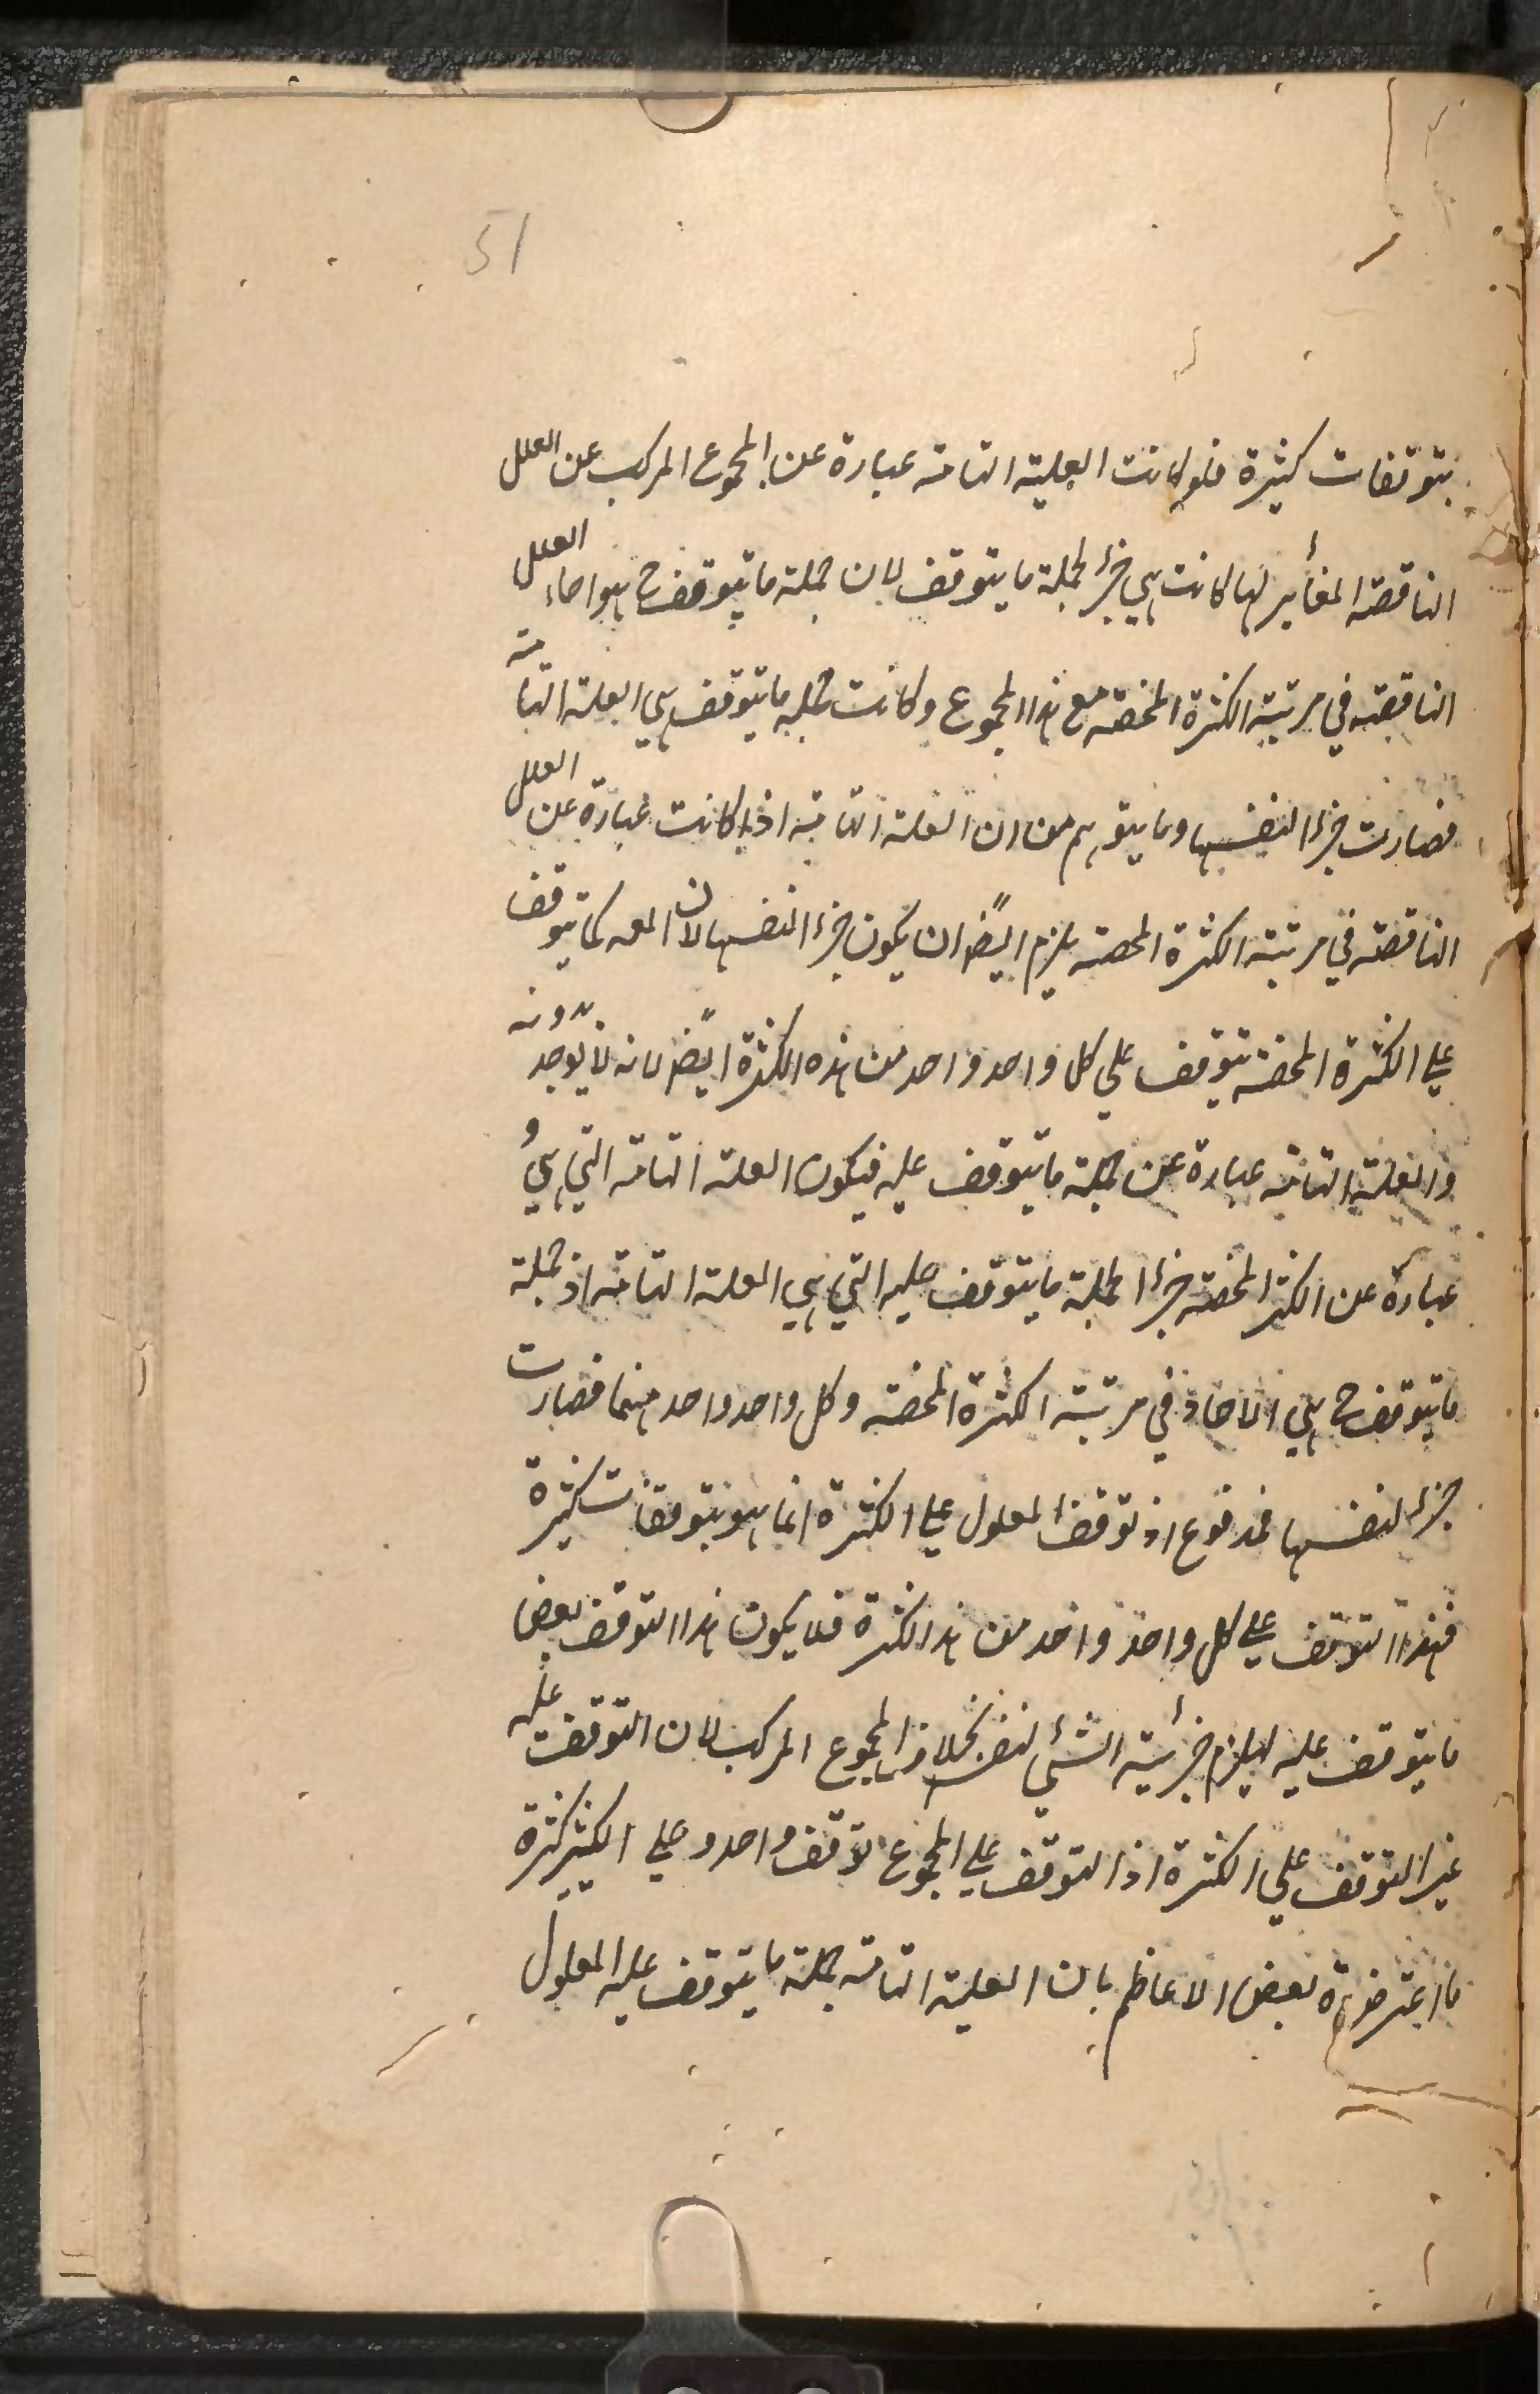 51
بتوقفات كثيرة فلو كانت العلية التامة عبارة عن المجموع المركب عن العلل
الناقصة المغاير لها كانت هي جزأ لجملة ما يتوقف لان جملة ما يتوقف ح هو احاد العلل
الناقصة في مرتبة الكثرة المحضة مع هذا المجموع وكانت جملة ما يتوقف هي العلة التامة
فصارت جزءا لنفسها وما يتوهم من ان العلة التامة اذا كانت عبارة عن العلل
الناقصة في مرتبة الكثرة المحضة يلزم ايضًا ان يكون جزءا لنفسها لان المعه كما يتوقف
على الكثرة المحضة يتوقف على كل واحد واحد من هذه الكثرة ايضًا لانه لا يوجد بدونه
والعلة التامة عبارة عن جملة ما يتوقف عليه فيكون العلة التامة التي هي
عبارة عن الكثرة المحضة جزءا لجملة ما يتوقف عليه التي هي العلة التامة اذ جملة
ما يتوقف ح هي الاحاد في مرتبة الكثرة المحضة وكل واحد واحد منهما فصارت
جزء لنفسها فمدفوع اذ توقف المعلول على الكثرة انما هو بتوقفات كثيرة
فهذا التوقف على كل واحد واحد من هذ الكثرة فلا يكون هذا التوقف بعض
ما يتوقف عليه ليلزم جزئية الشيء لنفسه بخلاف المجموع المركب لان التوقف عليه
غير التوقف على الكثرة اذ التوقف على المجموع توقف واحد وعلى الكثير كثرة
ما اعترض به بعض الاعاظم بان العلية التامة جملة ما يتوقف عليه المعلول